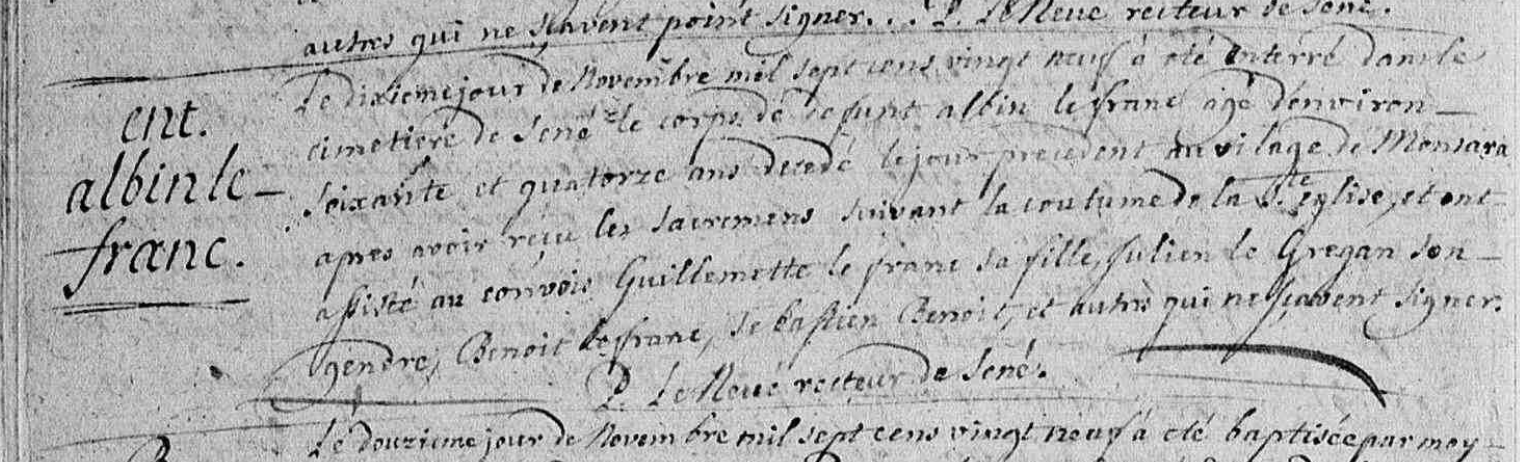 autres qui ne sçavent point signer... P. Le Neue recteur de Sené.
ent.
albin le-
franc.
Le dixieme jour de Novembre mil sept cens vingt neuf à eté enterré dans le
cimetiere de Sené le corps de defunt albin le franc agé d'environ-
soixante et quatorze ans decedé le jour precedent au vilage de Monsara
apres avoir reçu les sacremens suivant la coutume de la Ste eglise, et ont
assisté au convois Guillemette le franc sa fille, Julien le Gregan son-
gendre, Benoit le franc, Sebastien Benoit, et autres qui ne sçavent signer.
P. Le Neue recteur de Sené.
Le douzieme jour de Novembre mil sept cens vingt neuf à eté baptisée par moy-
B